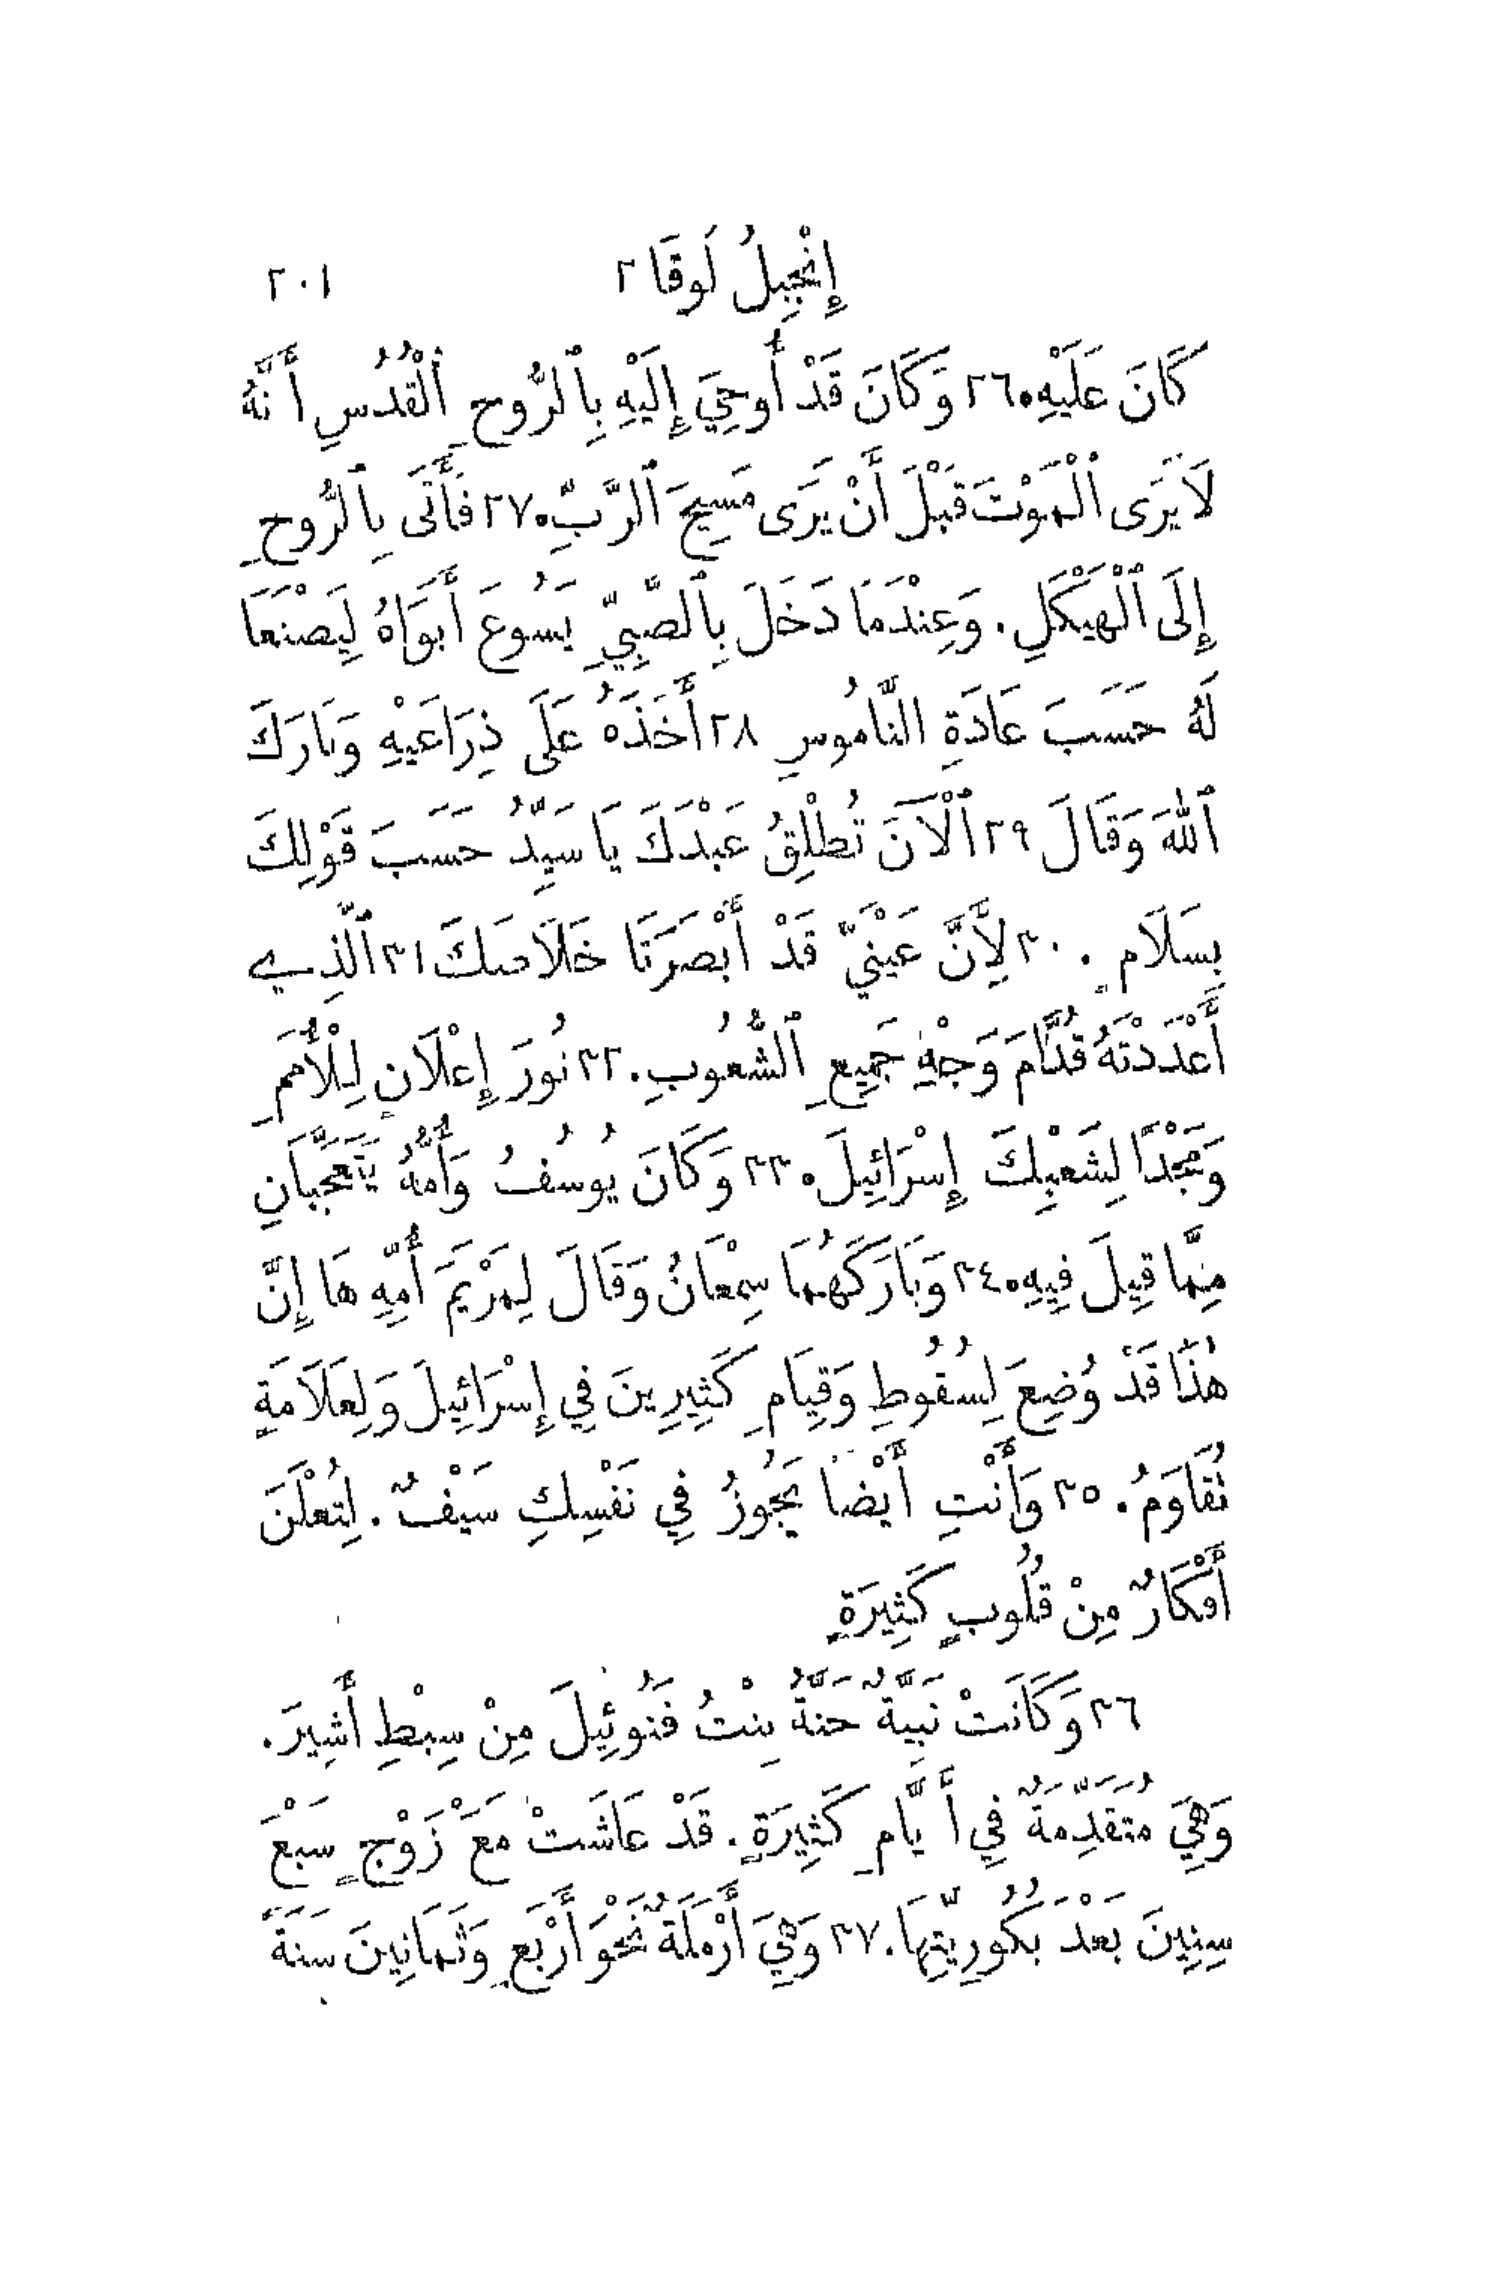 إِنْجِيلُ لُوقَا ٢ ٢٠١
كَانَ عَلَيْهِ. ٢٦ وَكَانَ قَدْ أُوحِيَ إِلَيْهِ بِٱلرُّوحِ ٱلْقُدُسِ أَنَّهُ
لَا يَرَى ٱلْمَوْتَ قَبْلَ أَنْ يَرَى مَسِيحَ ٱلرَّبِّ. ٢٧ فَأَتَى بِٱلرُّوحِ
إِلَى ٱلْهَيْكَلِ. وَعِنْدَمَا دَخَلَ بِٱلصَّبِيِّ يَسُوعَ أَبَوَاهُ لِيَصْنَعَا
لَهُ حَسَبَ عَادَةِ النَّامُوسِ ٢٨ أَخَذَهُ عَلَى ذِرَاعَيْهِ وَبَارَكَ
ٱللهَ وَقَالَ ٢٩ ٱلْآنَ تُطْلِقُ عَبْدَكَ يَا سَيِّدُ حَسَبَ قَوْلِكَ
بِسَلَامٍ. ٣٠ لِأَنَّ عَيْنَيَّ قَدْ أَبْصَرَتَا خَلَاصَكَ ٣١ ٱلَّذِي
أَعْدَدْتَهُ قُدَّامَ وَجْهِ جَمِيعِ ٱلشُّعُوبِ. ٣٢ نُورَ إِعْلَانٍ لِلْأُمَمِ
وَمَجْدًا لِشَعْبِكَ إِسْرَائِيلَ. ٣٣ وَكَانَ يُوسُفُ وَأُمُّهُ يَتَعَجَّبَانِ
مِمَّا قِيلَ فِيهِ. ٣٤ وَبَارَكَهُمَا سِمْعَانُ وَقَالَ لِمَرْيَمَ أُمِّهِ هَا إِنَّ
هٰذَا قَدْ وُضِعَ لِسُقُوطِ وَقِيَامِ كَثِيرِينَ فِي إِسْرَائِيلَ وَلِعَلَامَةٍ
تُقَاوَمُ. ٣٥ وَأَنْتِ أَيْضًا يَجُوزُ فِي نَفْسِكِ سَيْفٌ. لِتُعْلَنَ
أَفْكَارٌ مِنْ قُلُوبٍ كَثِيرَةٍ
٣٦ وَكَانَتْ نَبِيَّةٌ حَنَّةُ بِنْتُ فَنُوئِيلَ مِنْ سِبْطِ أَشِيرَ.
وَهِيَ مُتَقَدِّمَةٌ فِي أَيَّامٍ كَثِيرَةٍ. قَدْ عَاشَتْ مَعَ زَوْجٍ سَبْعَ
سِنِينَ بَعْدَ بُكُورِيَّتِهَا. ٣٧ وَهِيَ أَرْمَلَةٌ نَحْوَ أَرْبَعٍ وَثَمَانِينَ سَنَةً